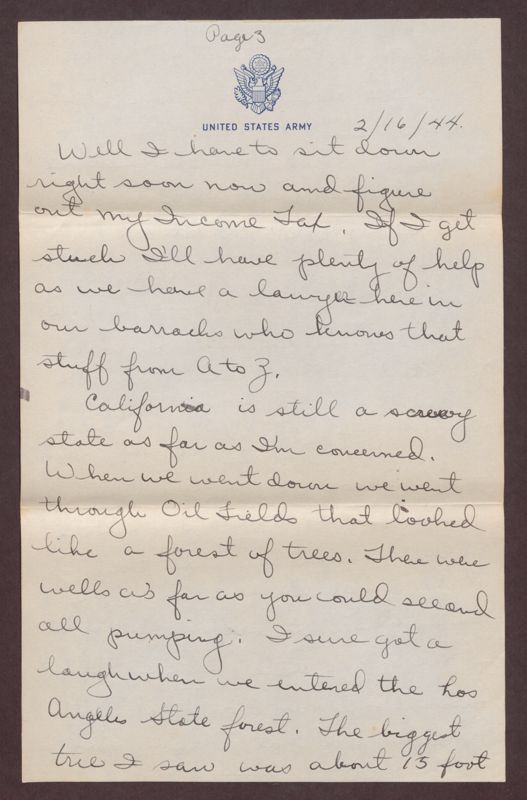 Page 3
UNITED STATES ARMY
2/16/44.
Well I have to sit down
right soon now and figure
out my Income Tax. If I get
stuck I'll have plenty of help
as we have a lawyer here in
our barracks who knows that
stuff from A to Z.
California is still a screwy
state as far as I'm concerned.
When we went down we went
through Oil Fields that looked
like a forest of trees. There were
wells as far as you could see and
all pumping. I sure got a
laugh when we entered the Los
Angeles State forest. The biggest
tree I saw was about 15 foot